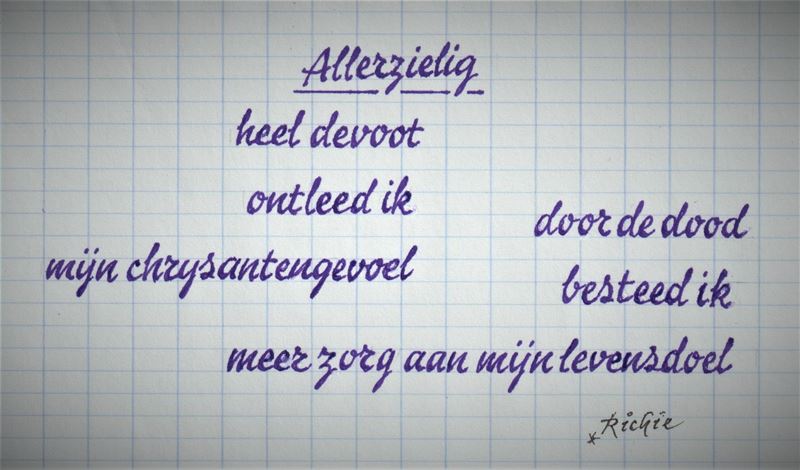 Allerzielig
heel devoot
ontleed ik
mijn chrysantengevoel
door de dood
besteed ik
meer zorg aan mijn levensdoel
*Richie